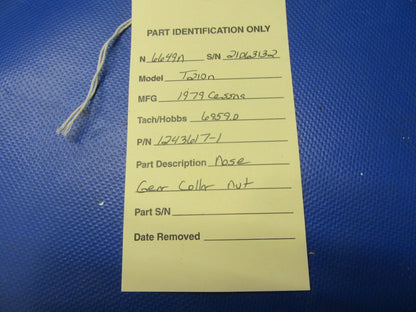 PART IDENTIFICATION ONLY
N 6649N S/N 21063132
Model T210n
MFG 1979 Cessna
Tach/Hobbs 6959.0
P/N 1243617-1
Part Description Nose
Gear Collar nut
Part S/N
Date Removed